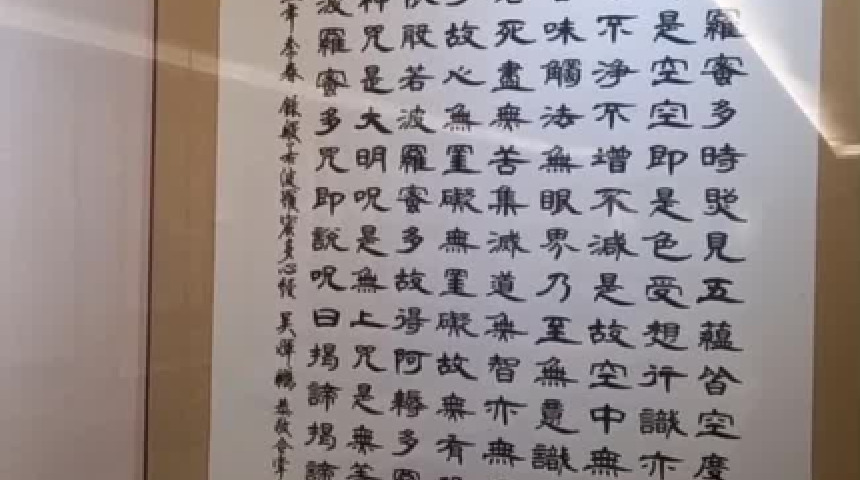 羅蜜多時照見五蘊皆空度
是空空即是色受想行識亦
不淨不增不減是故空中無
味觸法無眼界乃至無意識
死盡無苦集滅道無智亦無
故心無罣礙無罣礙故無有
般若波羅蜜多故得阿耨多羅
神咒是大明呪是無上咒是無等
波羅蜜多咒即説呪曰揭諦揭諦
年李春錄般若波羅蜜多心經吳輝鵬恭敬合掌